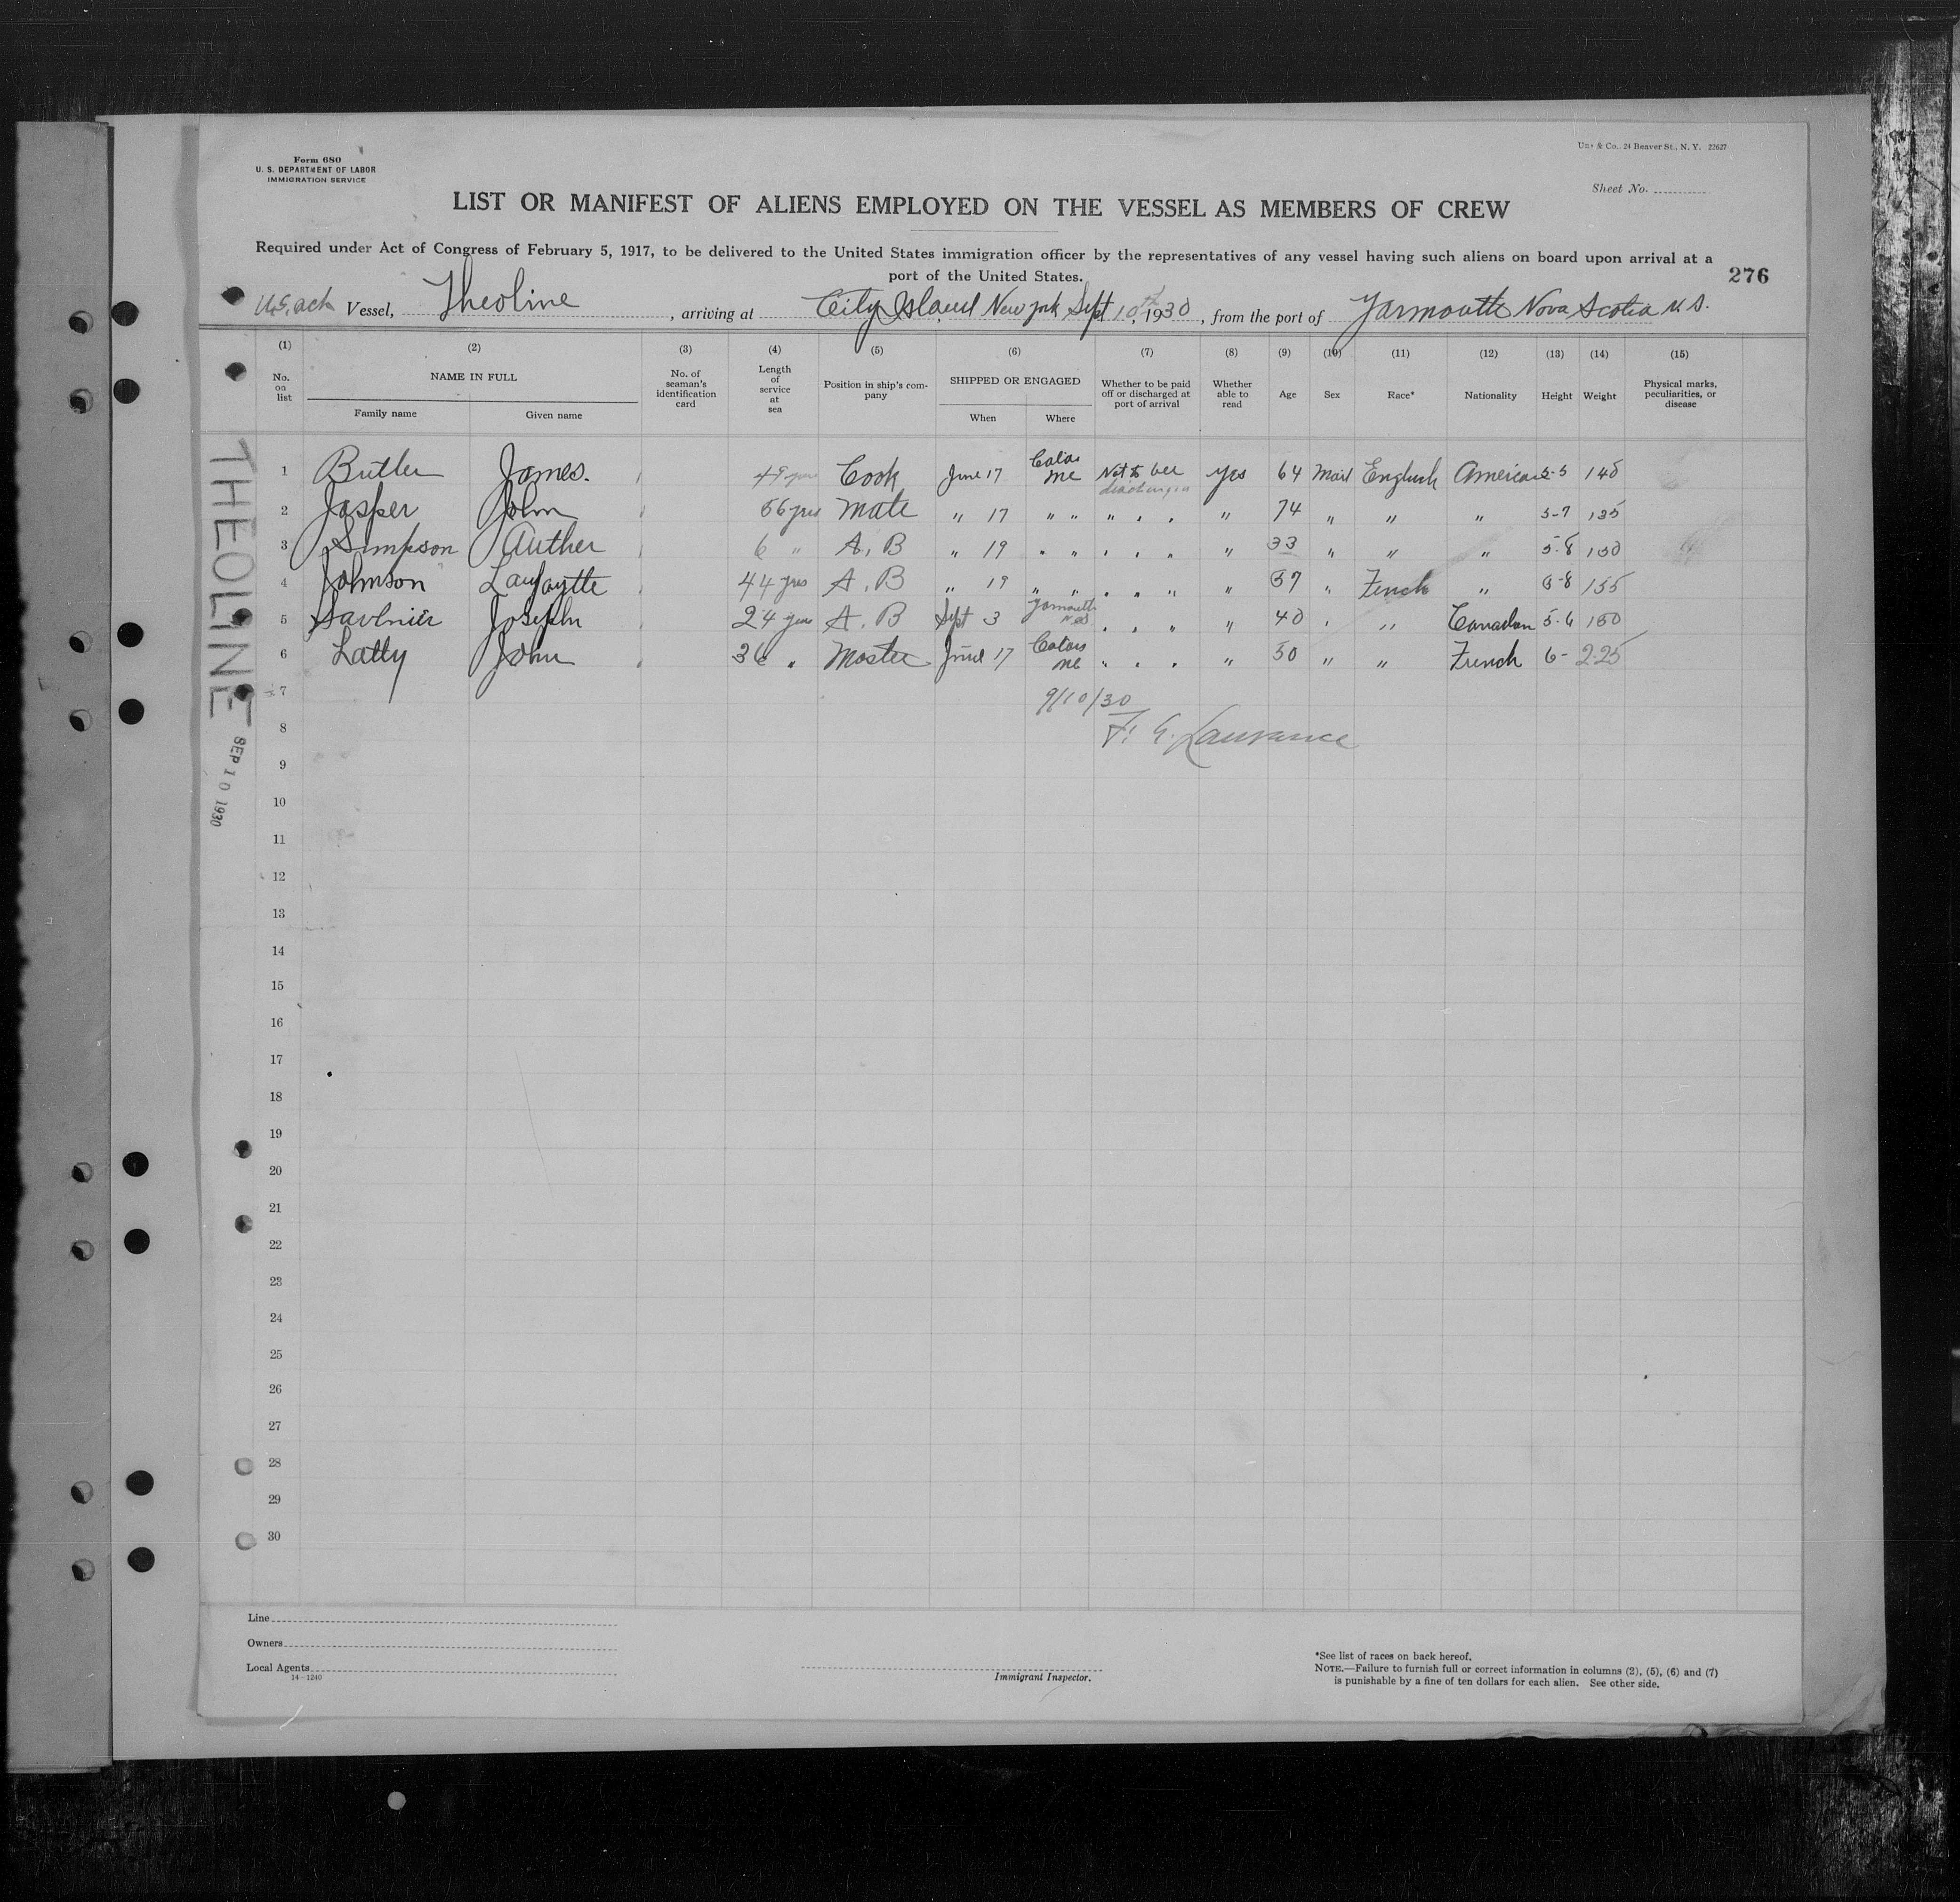 Form 680
U. S. DEPARTMENT OF LABOR
IMMIGRATION SERVICE
& Co., 24 Beaver St., N. Y. 22627
Sheet No.
LIST OR MANIFEST OF ALIENS EMPLOYED ON THE VESSEL AS MEMBERS OF CREW
Required under Act of Congress of February 5, 1917, to be delivered to the United States immigration officer by the representatives of any vessel having such aliens on board upon arrival at a
port of the United States.
276
Vessel, Theoline, arriving at City Island New York Sept 10th, 1930, from the port of Yarmouth Nova Scotia N. S.
(1) (2) (3) (4) (5) (6) (7) (8) (9) (10) (11) (12) (13) (14) (15)
No. on list NAME IN FULL No. of seaman's identification card Length of service at sea Position in ship's company SHIPPED OR ENGAGED Whether to be paid off or discharged at port of arrival Whether able to read Age Sex Race* Nationality Height Weight Physical marks, peculiarities, or disease
Family name Given name When Where
1 Butler James. yrs Cook June 17 Calais Me Not to bee discharged yes 64 Mail English American 5-5 145
2 Jasper John 56 yrs Mate " 17 " " " " " " 74 " " " 5-7 135
3 Simpson Auther 6 " A, B " 19 " " " " " " 33 " " " 5-8 150
4 Johnson Laufaytte 44 yrs A, B " 19 " " " " " " 57 " Fench " 5-8 155
5 Savlnier Joseph 24 yrs A, B Sept 3 Yarmouth N.S " " " " 40 " " Canadian 5-6 150
6 Latty John 36 " Master June 17 Calais Me " " " " 50 " " French 6- 225
7
9/10/30
8
F. G. Lawrance
9
10
11
12
13
14
15
16
17
18
19
20
21
22
23
24
25
26
27
28
29
30
THEOLINE
SEP 10 1930
Line
Owners
Local Agents
14-1240
Immigrant Inspector.
*See list of races on back hereof.
NOTE.—Failure to furnish full or correct information in columns (2), (5), (6) and (7)
is punishable by a fine of ten dollars for each alien. See other side.